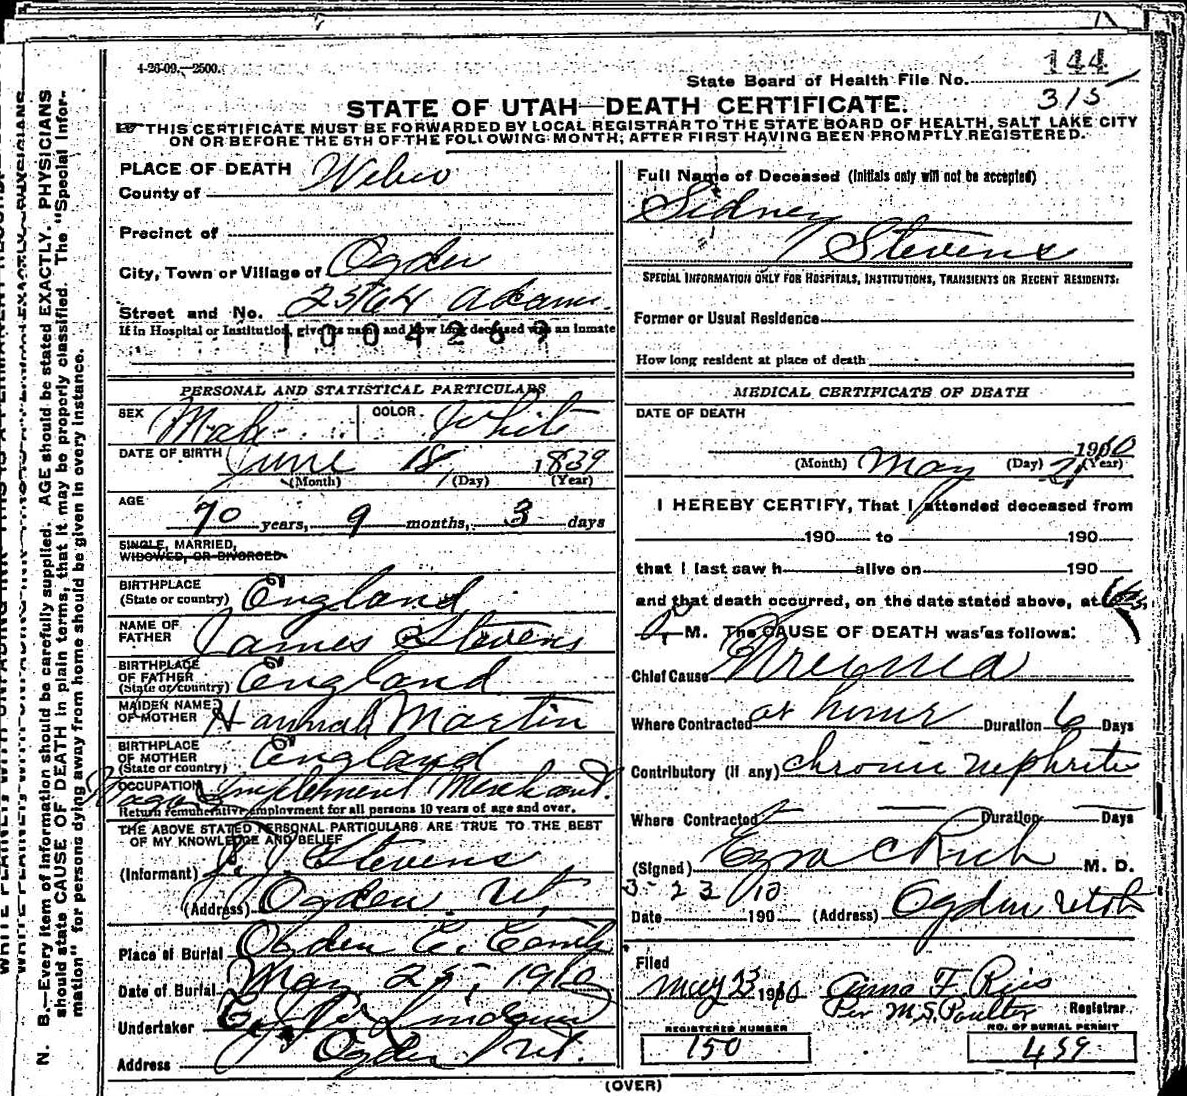 4-26-09.—2500.
State Board of Health File No. 144
315
STATE OF UTAH—DEATH CERTIFICATE.
THIS CERTIFICATE MUST BE FORWARDED BY LOCAL REGISTRAR TO THE STATE BOARD OF HEALTH, SALT LAKE CITY
ON OR BEFORE THE 5TH OF THE FOLLOWING MONTH; AFTER FIRST HAVING BEEN PROMPTLY REGISTERED.
N. B.—Every item of information should be carefully supplied. AGE should be stated EXACTLY. PHYSICIANS
should state CAUSE OF DEATH in plain terms, that it may be properly classified. The "Special Infor-
mation" for persons dying away from home should be given in every instance.
PLACE OF DEATH
County of Weber
Precinct of
City, Town or Village of Ogden
Street and No. 2564 Adams.
If in Hospital or Institution, give its name and how long deceased was an inmate
1004269
PERSONAL AND STATISTICAL PARTICULARS
SEX Male COLOR White
DATE OF BIRTH June 18, 1839
(Month) (Day) (Year)
AGE
70 years, 9 months, 3 days
SINGLE, MARRIED,
WIDOWED, OR DIVORCED
BIRTHPLACE
(State or country) England
NAME OF
FATHER James Stevens
BIRTHPLACE
OF FATHER
(State or country) England
MAIDEN NAME
OF MOTHER Hannah Martin
BIRTHPLACE
OF MOTHER
(State or country) England
OCCUPATION Wagon Implement Merchant
Return remunerative employment for all persons 10 years of age and over.
THE ABOVE STATED PERSONAL PARTICULARS ARE TRUE TO THE BEST
OF MY KNOWLEDGE AND BELIEF
(Informant) Stevens
(Address) Ogden Ut.
Place of Burial Ogden C. Cemty
Date of Burial May 25, 1910
Undertaker Lindquist
Address Ogden Ut.
Full Name of Deceased (Initials only will not be accepted)
Sidney
Stevens
SPECIAL INFORMATION ONLY FOR HOSPITALS, INSTITUTIONS, TRANSIENTS OR RECENT RESIDENTS:
Former or Usual Residence
How long resident at place of death
MEDICAL CERTIFICATE OF DEATH
DATE OF DEATH
1910
(Month) May (Day) 21 (Year)
I HEREBY CERTIFY, That I attended deceased from
190 to 190
that I last saw h alive on 190
and that death occurred, on the date stated above, at
M. The CAUSE OF DEATH was as follows:
Chief Cause Uremia
Where Contracted at home Duration 6 Days
Contributory (if any) chronic nephritis
Where Contracted Duration Days
(Signed) Ezra C Rich M. D.
Date 5-23 1910 (Address) Ogden Utah
Filed
May 23 1910 Anna F. Ries
Per M.S. Poulter Registrar
REGISTERED NUMBER
150
NO. OF BURIAL PERMIT
459
(OVER)